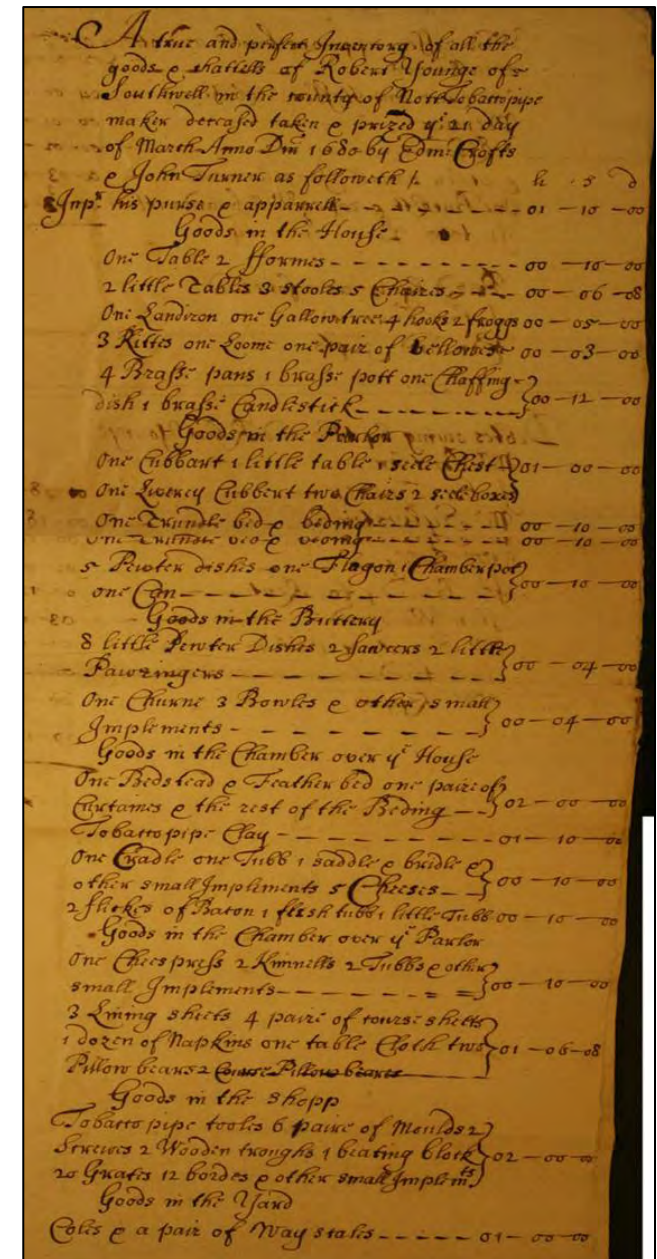 A true and perfect Inventory of all the
goods & chattells of Robert Younge of
Southwell in the county of Nott Tobaccopipe
maker deceased taken & prized yᵉ 21 day
of March Anno Dm 1680 by Edm: Crofts
& John Turner as followeth li s d
Inpʳ his purse & apparrell 01 - 10 - 00
Goods in the House
One Table 2 fformes 00 - 10 - 00
2 little Tables 3 stooles 5 Chaires 00 - 06 - 08
One Landiron one Gallowtree 4 hooks 2 froggs 00 - 05 - 00
3 Kittes one Loome one pair of bellowes 00 - 03 - 00
4 Brasse pans 1 brasse pott one Chaffing
dish 1 brasse Candlestick 00 - 12 - 00
Goods in the Parlor
One Cubbart 1 little table 1 seele Chest 01 - 00 - 00
One Liverey Cubbert two Chairs 2 seele boxes
One Trundle bed & beding 00 - 10 - 00
One Trundle bed & beding 00 - 10 - 00
5 Pewter dishes one Flagon 1 Chamber pot
one Can 00 - 10 - 00
Goods in the Buttery
8 little Pewter Dishes 2 sawcers 2 little
Pawringers 00 - 04 - 00
One Churne 3 Bowles & other small
Implements 00 - 04 - 00
Goods in the Chamber over yᵉ House
One Bedstead & Feather bed one paire of
Curtaines & the rest of the Beding 02 - 00 - 00
Tobaccopipe Clay 01 - 10 - 00
One Cradle one Tubb 1 saddle & bridle &
other small Implements 5 Cheeses 00 - 10 - 00
2 flickes of Bacon 1 flesh tubb 1 little Tubb 00 - 10 - 00
Goods in the Chamber over yᵉ Parlor
One Cheespress 2 Kimnells 2 Tubbs & other
small Implements 00 - 10 - 00
3 Lining sheets 4 paire of course sheets
1 dozen of Napkins one table Cloth two 01 - 06 - 08
Pillow bears 2 Course Pillow beares
Goods in the Shopp
Tobacco pipe tooles 6 paire of Moulds 2
Screwes 2 Wooden troughs 1 beating block 02 - 00 - 00
20 Grates 12 bordes & other small Implemᵗˢ
Goods in the Yard
Coles & a pair of Way stales 01 - 00 - 00